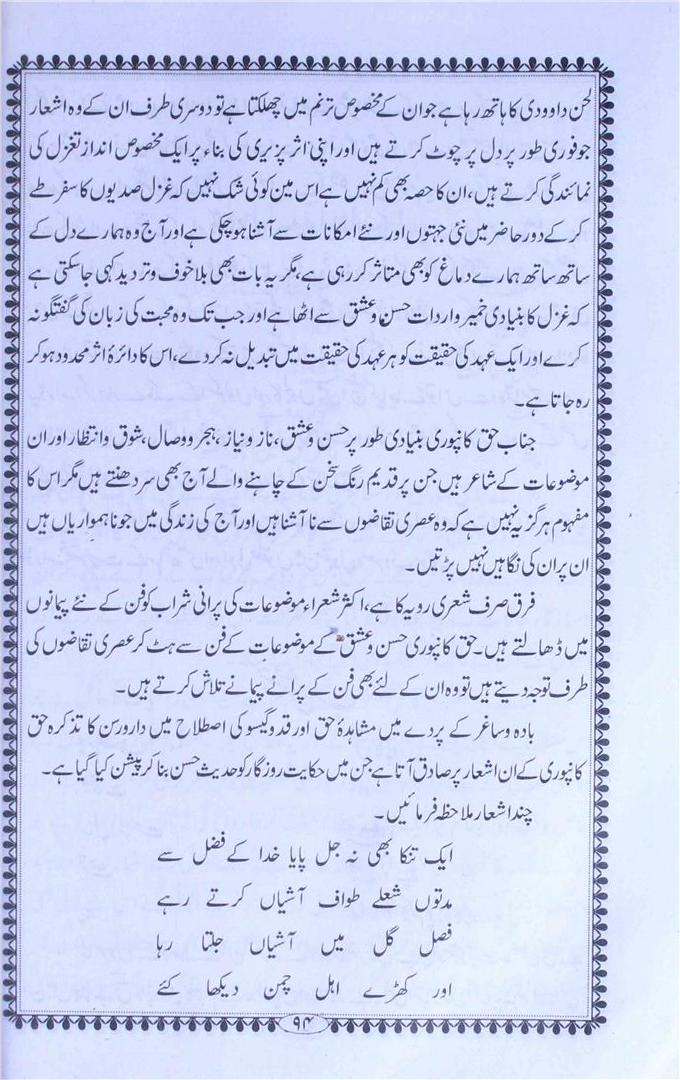 لحن داوودی کا ہاتھ رہا ہے جو ان کے مخصوص ترنم میں چھلکتا ہے تو دوسری طرف ان کے وہ اشعار
جو فوری طور پر دل پر چوٹ کرتے ہیں اور اپنی اثر پزیری کی بناء پر ایک مخصوص انداز تغزل کی
نمائندگی کرتے ہیں، ان کا حصہ بھی کم نہیں ہے اس مین کوئی شک نہیں کہ غزل صدیوں کا سفر طے
کر کے دور حاضر میں نئی جہتوں اور نئے امکانات سے آشنا ہو چکی ہے اور آج وہ ہمارے دل کے
ساتھ ساتھ ہمارے دماغ کو بھی متاثر کر رہی ہے، مگر یہ بات بھی بلا خوف و تردید کہی جا سکتی ہے
کہ غزل کا بنیادی خمیر واردات حسن و عشق سے اٹھا ہے اور جب تک وہ محبت کی زبان کی گفتگو نہ
کرے اور ایک عہد کی حقیقت کو ہر عہد کی حقیقت میں تبدیل نہ کر دے، اس کا دائرۂ اثر محدود ہو کر
رہ جاتا ہے
جناب حق کانپوری بنیادی طور پر حسن و عشق، ناز و نیاز، ہجر و وصال، شوق و انتظار اور ان
موضوعات کے شاعر ہیں جن پر قدیم رنگ سخن کے چاہنے والے آج بھی سر دھنتے ہیں مگر اس کا
مفہوم ہر گز یہ نہیں ہے کہ وہ عصری تقاضوں سے نا آشنا ہیں اور آج کی زندگی میں جو نا ہمواریاں ہیں
ان پر ان کی نگاہیں نہیں پڑتیں۔
فرق صرف شعری رویہ کا ہے، اکثر شعراء موضوعات کی پرانی شراب کو فن کے نئے پیمانوں
میں ڈھالتے ہیں۔ حق کانپوری حسن و عشق کے موضوعات کے فن سے ہٹ کر عصری تقاضوں کی
طرف توجہ دیتے ہیں تو وہ ان کے لئے بھی فن کے پرانے پیمانے تلاش کرتے ہیں۔
بادہ و ساغر کے پردے میں مشاہدۂ حق اور قد و گیسو کی اصطلاح میں دار و رسن کا تذکرہ حق
کانپوری کے ان اشعار پر صادق آتا ہے جن میں حکایت روزگار کو حدیث حسن بنا کر پیشن کیا گیا ہے۔
چند اشعار ملاحظہ فرمائیں۔
ایک تنکا بھی نہ جل پایا خدا کے فضل سے
مدتوں شعلے طواف آشیاں کرتے رہے
فصل گل میں آشیاں جلتا رہا
اور کھڑے اہل چمن دیکھا کئے
۹۴